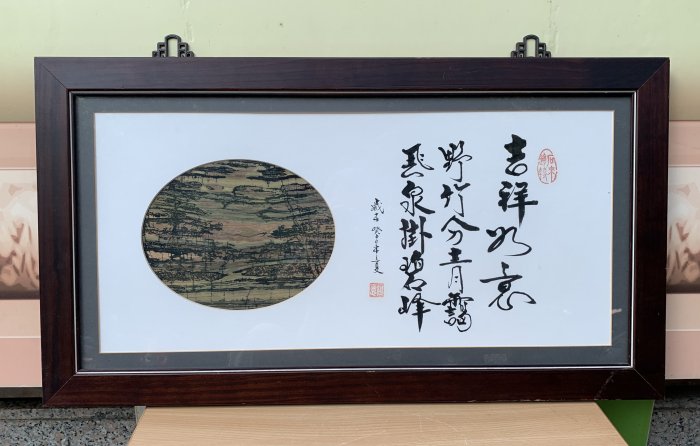 吉祥如意
野竹分青靄
飛泉掛碧峰
歲在癸未之夏